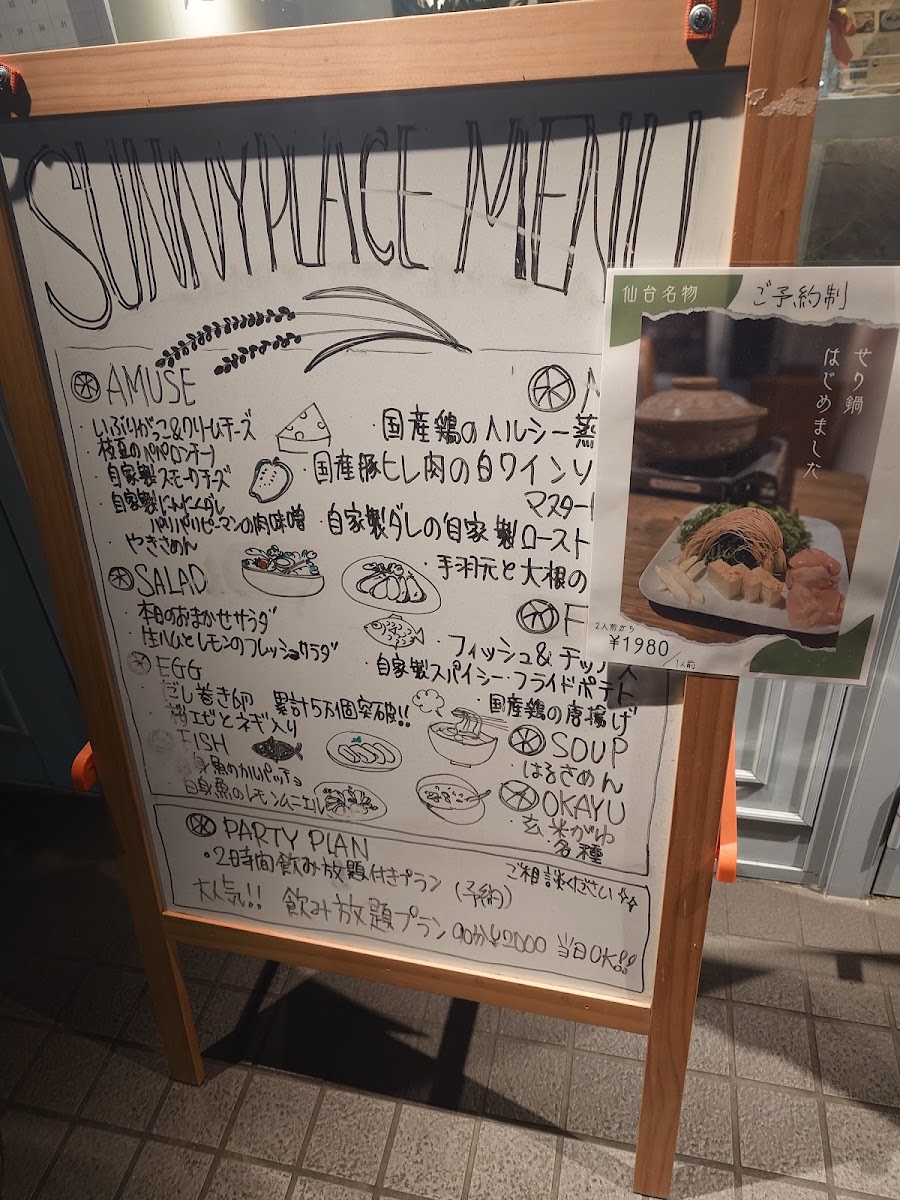 SUNNYPLACE MENU
AMUSE
・いぶりがっこ&クリームチーズ
・枝豆のペペロンチーノ
・自家製スモークチーズ
・自家製にんにくダレ
パリパリピーマンの肉味噌
・やきさめん
SALAD
・本日のおまかせサラダ
・生ハムとレモンのフレッシュサラダ
EGG
・だし巻き卵 累計5万個突破!!
・桜エビとネギ入り
FISH
身魚のカルパッチョ
白身魚のレモンムニエル
・国産鶏のヘルシー蒸
・国産豚ヒレ肉の白ワインソ
マスター
・自家製ダレの自家製ロースト
・手羽元と大根の
F
・フィッシュ&チップス
・自家製スパイシーフライドポテト
・国産鶏の唐揚げ
SOUP
・はるさめん
OKAYU
・玄米がゆ
各種
PARTY PLAN
・2時間飲み放題付きプラン (予約)
ご相談ください☆☆
大人気!! 飲み放題プラン 90分¥2000 当日OK!!
仙台名物
ご予約制
せり鍋
はじめました
2人前から
¥1980/1人前